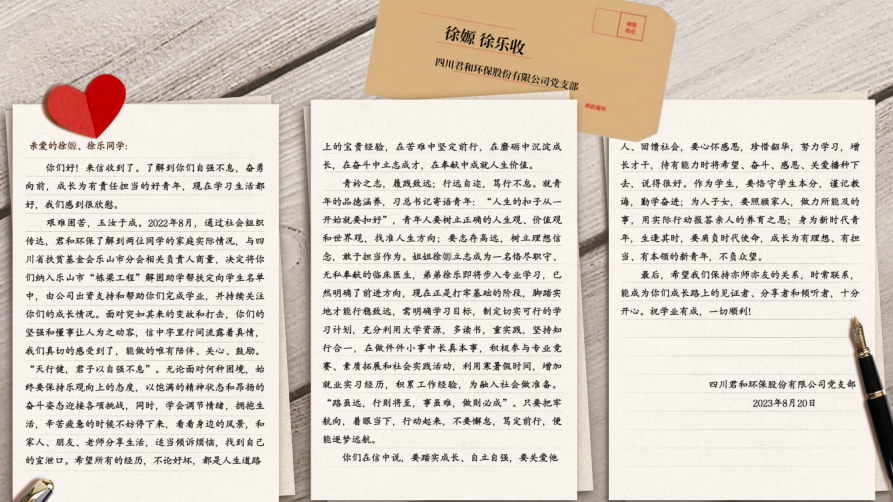 徐嫄 徐乐收
四川君和环保股份有限公司党支部
邮政编码
亲爱的徐嫄、徐乐同学:
你们好!来信收到了。了解到你们自强不息,奋勇
向前,成长为有责任担当的好青年,现在学习生活都
好,我们感到很欣慰。
艰难困苦,玉汝于成。2022年8月,通过社会组织
传达,君和环保了解到两位同学的家庭实际情况,与四
川省扶贫基金会乐山市分会相关负责人商量,决定将你
们纳入乐山市“栋梁工程”解困助学帮扶定向学生名单
中,由公司出资支持和帮助你们完成学业,并持续关注
你们的成长情况。面对突如其来的变故和打击,你们的
坚强和懂事让人为之动容,信中字里行间流露着真情,
我们真切的感受到了,能做的唯有陪伴、关心、鼓励。
“天行健,君子以自强不息”。无论面对何种困境,始
终要保持乐观向上的态度,以饱满的精神状态和昂扬的
奋斗姿态迎接各项挑战,同时,学会调节情绪,拥抱生
活,辛苦疲惫的时候不妨停下来,看看身边的风景,和
家人、朋友、老师分享生活,适当倾诉烦恼,找到自己
的宣泄口。希望所有的经历,不论好坏,都是人生道路
上的宝贵经验,在苦难中坚定前行,在磨砺中沉淀成
长,在奋斗中立志成才,在奉献中成就人生价值。
青衿之志,履践致远;行远自迩,笃行不怠。就青
年的品德涵养,习总书记寄语青年:“人生的扣子从一
开始就要扣好”,青年人要树立正确的人生观、价值观
和世界观,找准人生方向;要志存高远,树立理想信
念,敢于担当作为。姐姐徐嫄立志成为一名恪尽职守、
无私奉献的临床医生,弟弟徐乐即将步入专业学习,已
然明确了前进方向,现在正是打牢基础的阶段,脚踏实
地才能行稳致远,需明确学习目标,制定切实可行的学
习计划,充分利用大学资源,多读书,重实践,坚持知
行合一,在做件件小事中长真本事,积极参与专业竞
赛、素质拓展和社会实践活动,利用寒暑假时间,增加
就业实习经历,积累工作经验,为融入社会做准备。
“路虽远,行则将至,事虽难,做则必成”。只要把牢
航向,着眼当下,行动起来,不要懈怠,笃定前行,便
能逐梦远航。
你们在信中说,要踏实成长、自立自强,要关爱他
人、回馈社会,要心怀感恩,珍惜韶华,努力学习,增
长才干,待有能力时将希望、奋斗、感恩、关爱播种下
去,说得很好。作为学生,要恪守学生本分,谨记教
诲,勤学奋进;为人子女,要照顾家人,做力所能及的
事,用实际行动报答亲人的养育之恩;身为新时代青
年,生逢其时,要肩负时代使命,成长为有理想、有担
当、有本领的新青年,不负众望。
最后,希望我们保持亦师亦友的关系,时常联系,
能成为你们成长路上的见证者、分享者和倾听者,十分
开心。祝学业有成,一切顺利!
四川君和环保股份有限公司党支部
2023年8月20日